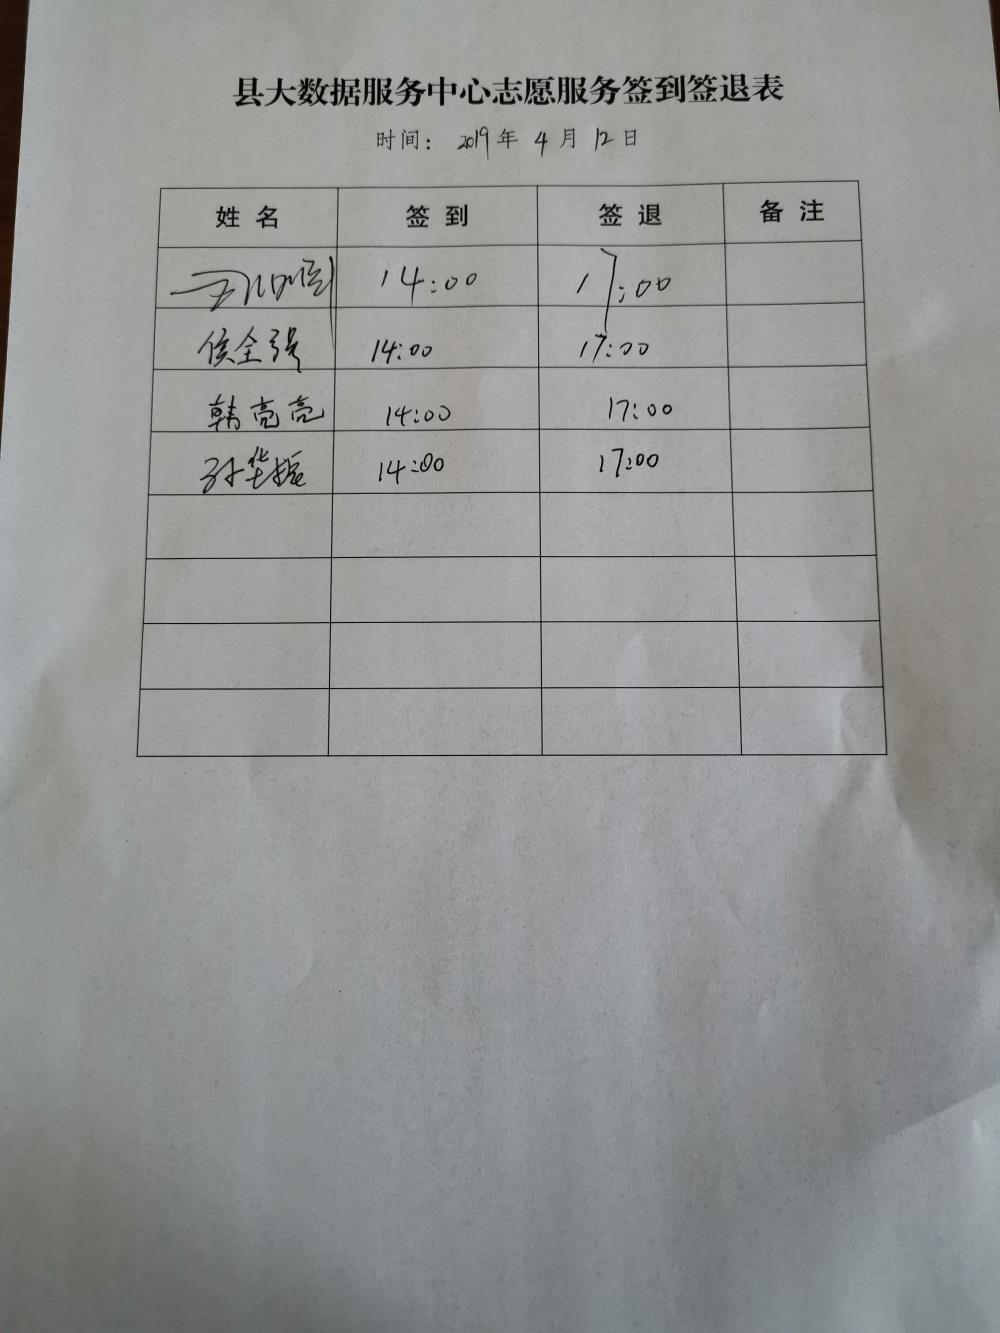 县大数据服务中心志愿服务签到签退表
时间： 2019 年 4 月 12 日
姓 名 签 到 签 退 备 注
14:00 17:00
侯全强 14:00 17:00
韩亮亮 14:00 17:00
孙华振 14:00 17:00